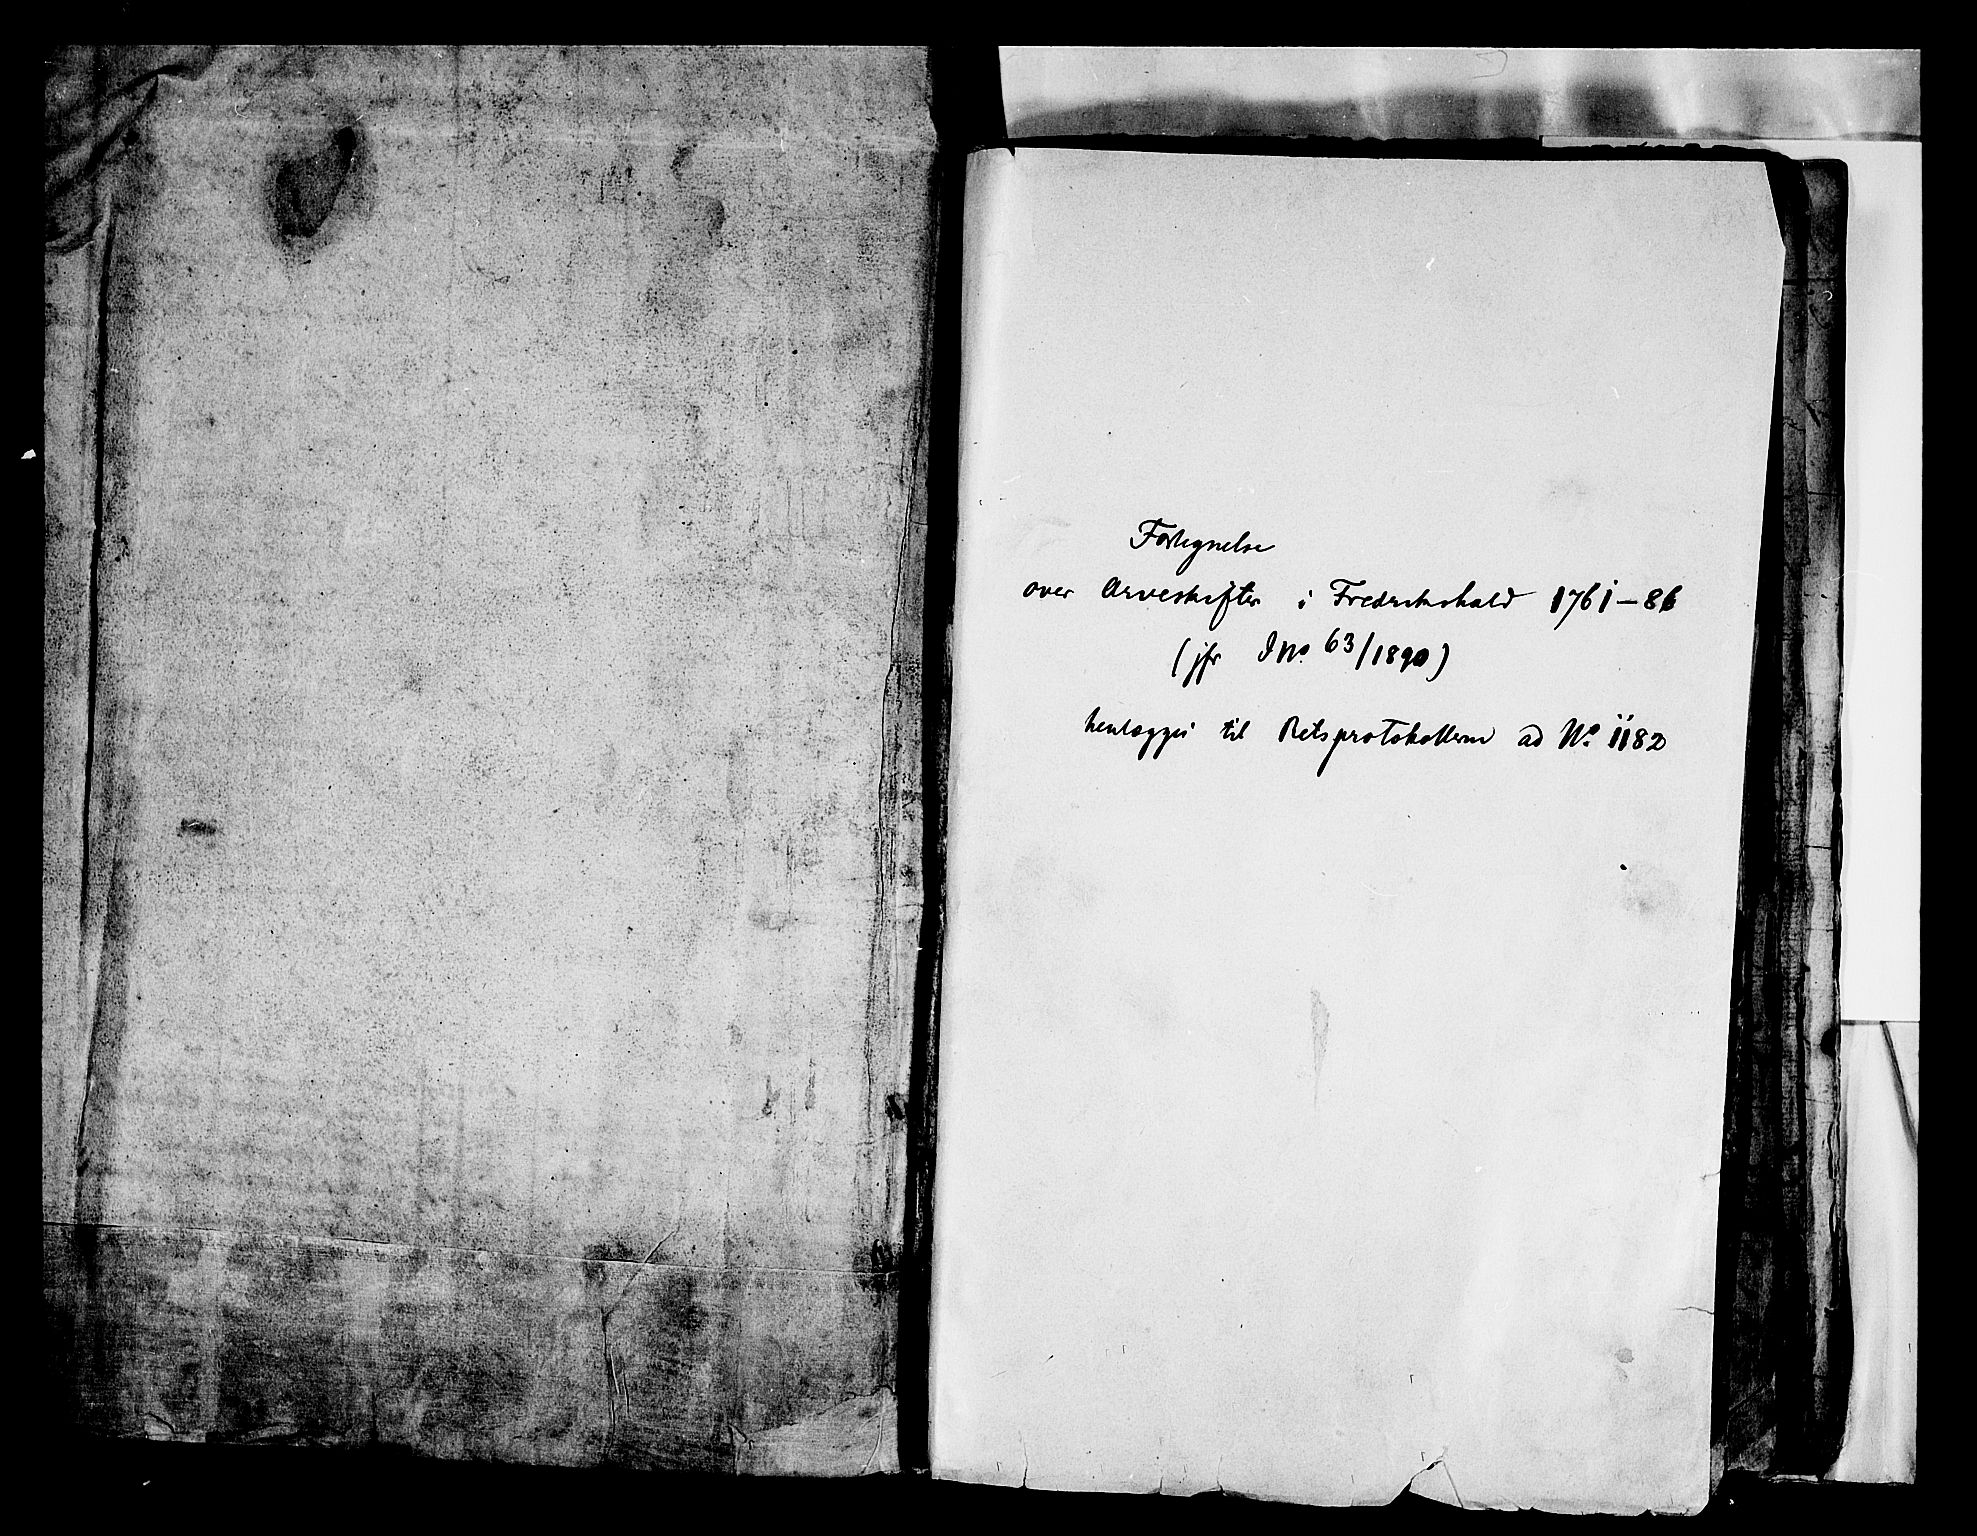 Fortegnelse
over Arveskifter i Fredrikshald 1761-86
(jfr J No. 63/1890)
henlægges til Retsprotokollerne ad No. 1182